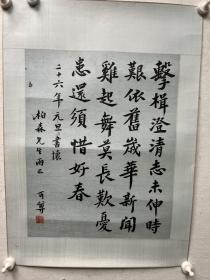 擊楫澄清志未伸時
艱依舊歲華新聞
雞起舞莫長歎憂
患還須惜好春
二十六年元旦書懷
柏森先生兩正